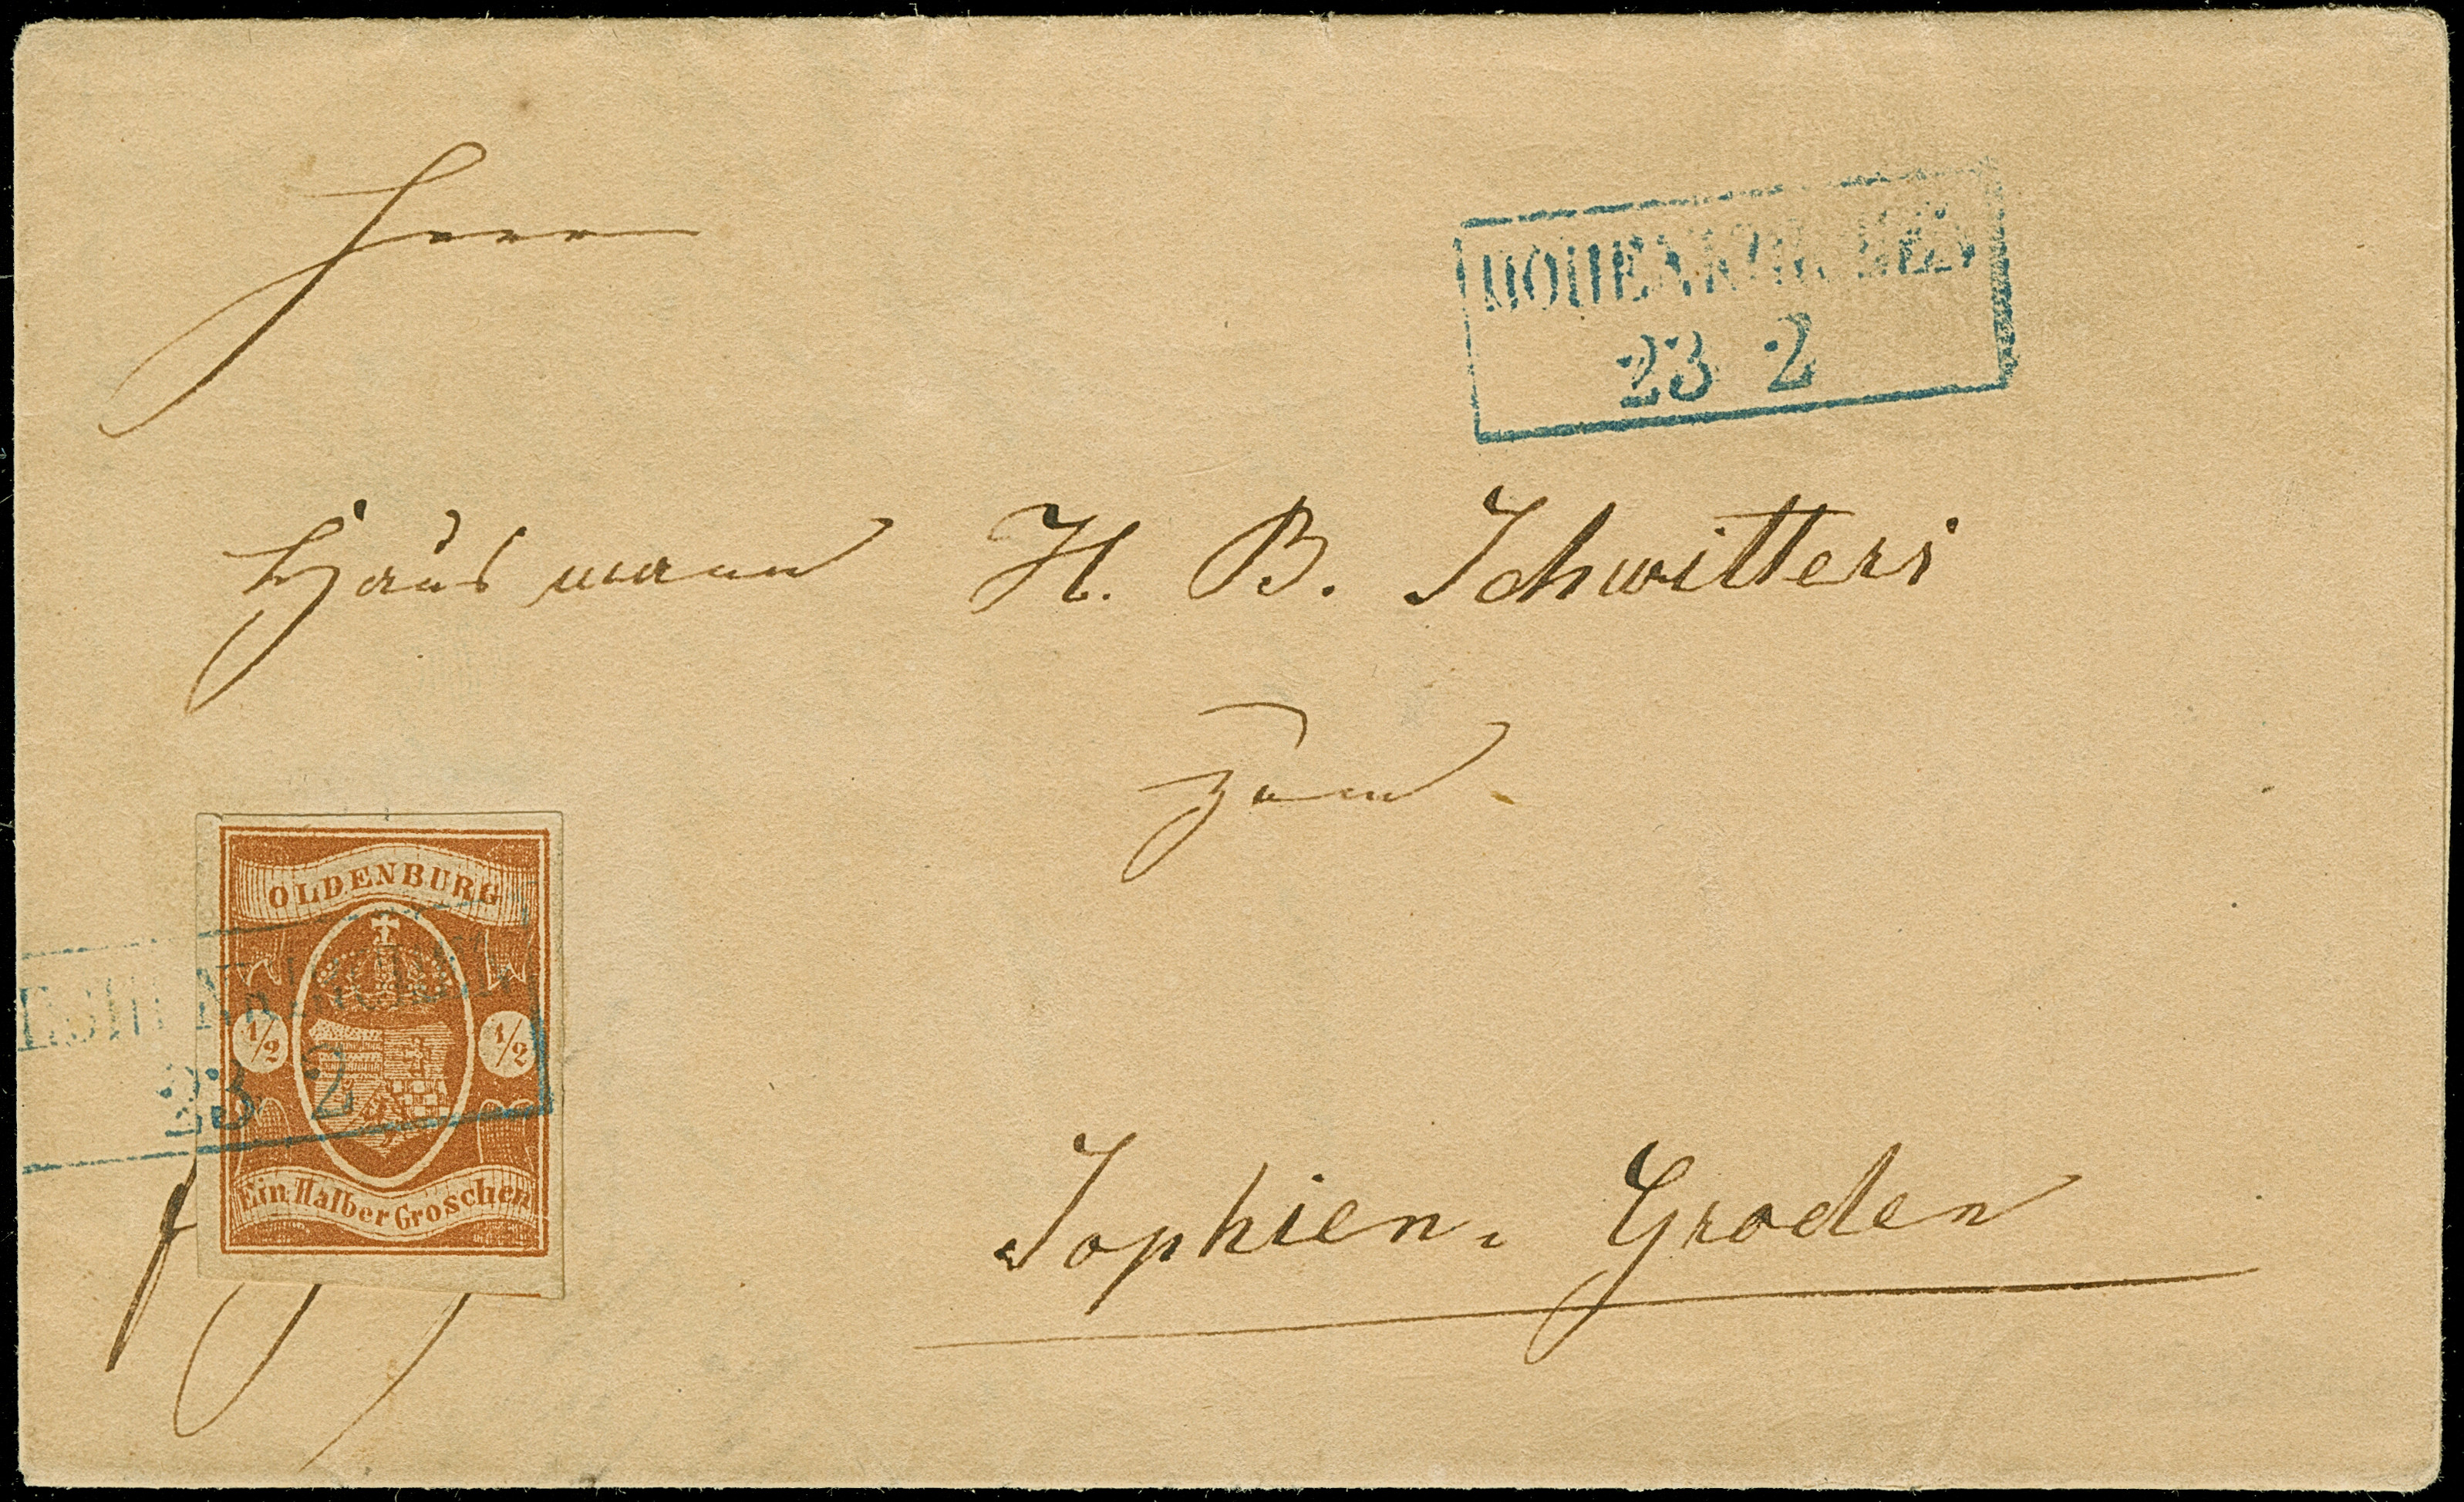 HOHENKIRCHEN
23 2
Herrn
Hausmann H. B. Schwitters
zum
OLDENBURG
HOHENKIRCHEN
1/2 1/2
23 2
Ein Halber Groschen
Sophien-Groden